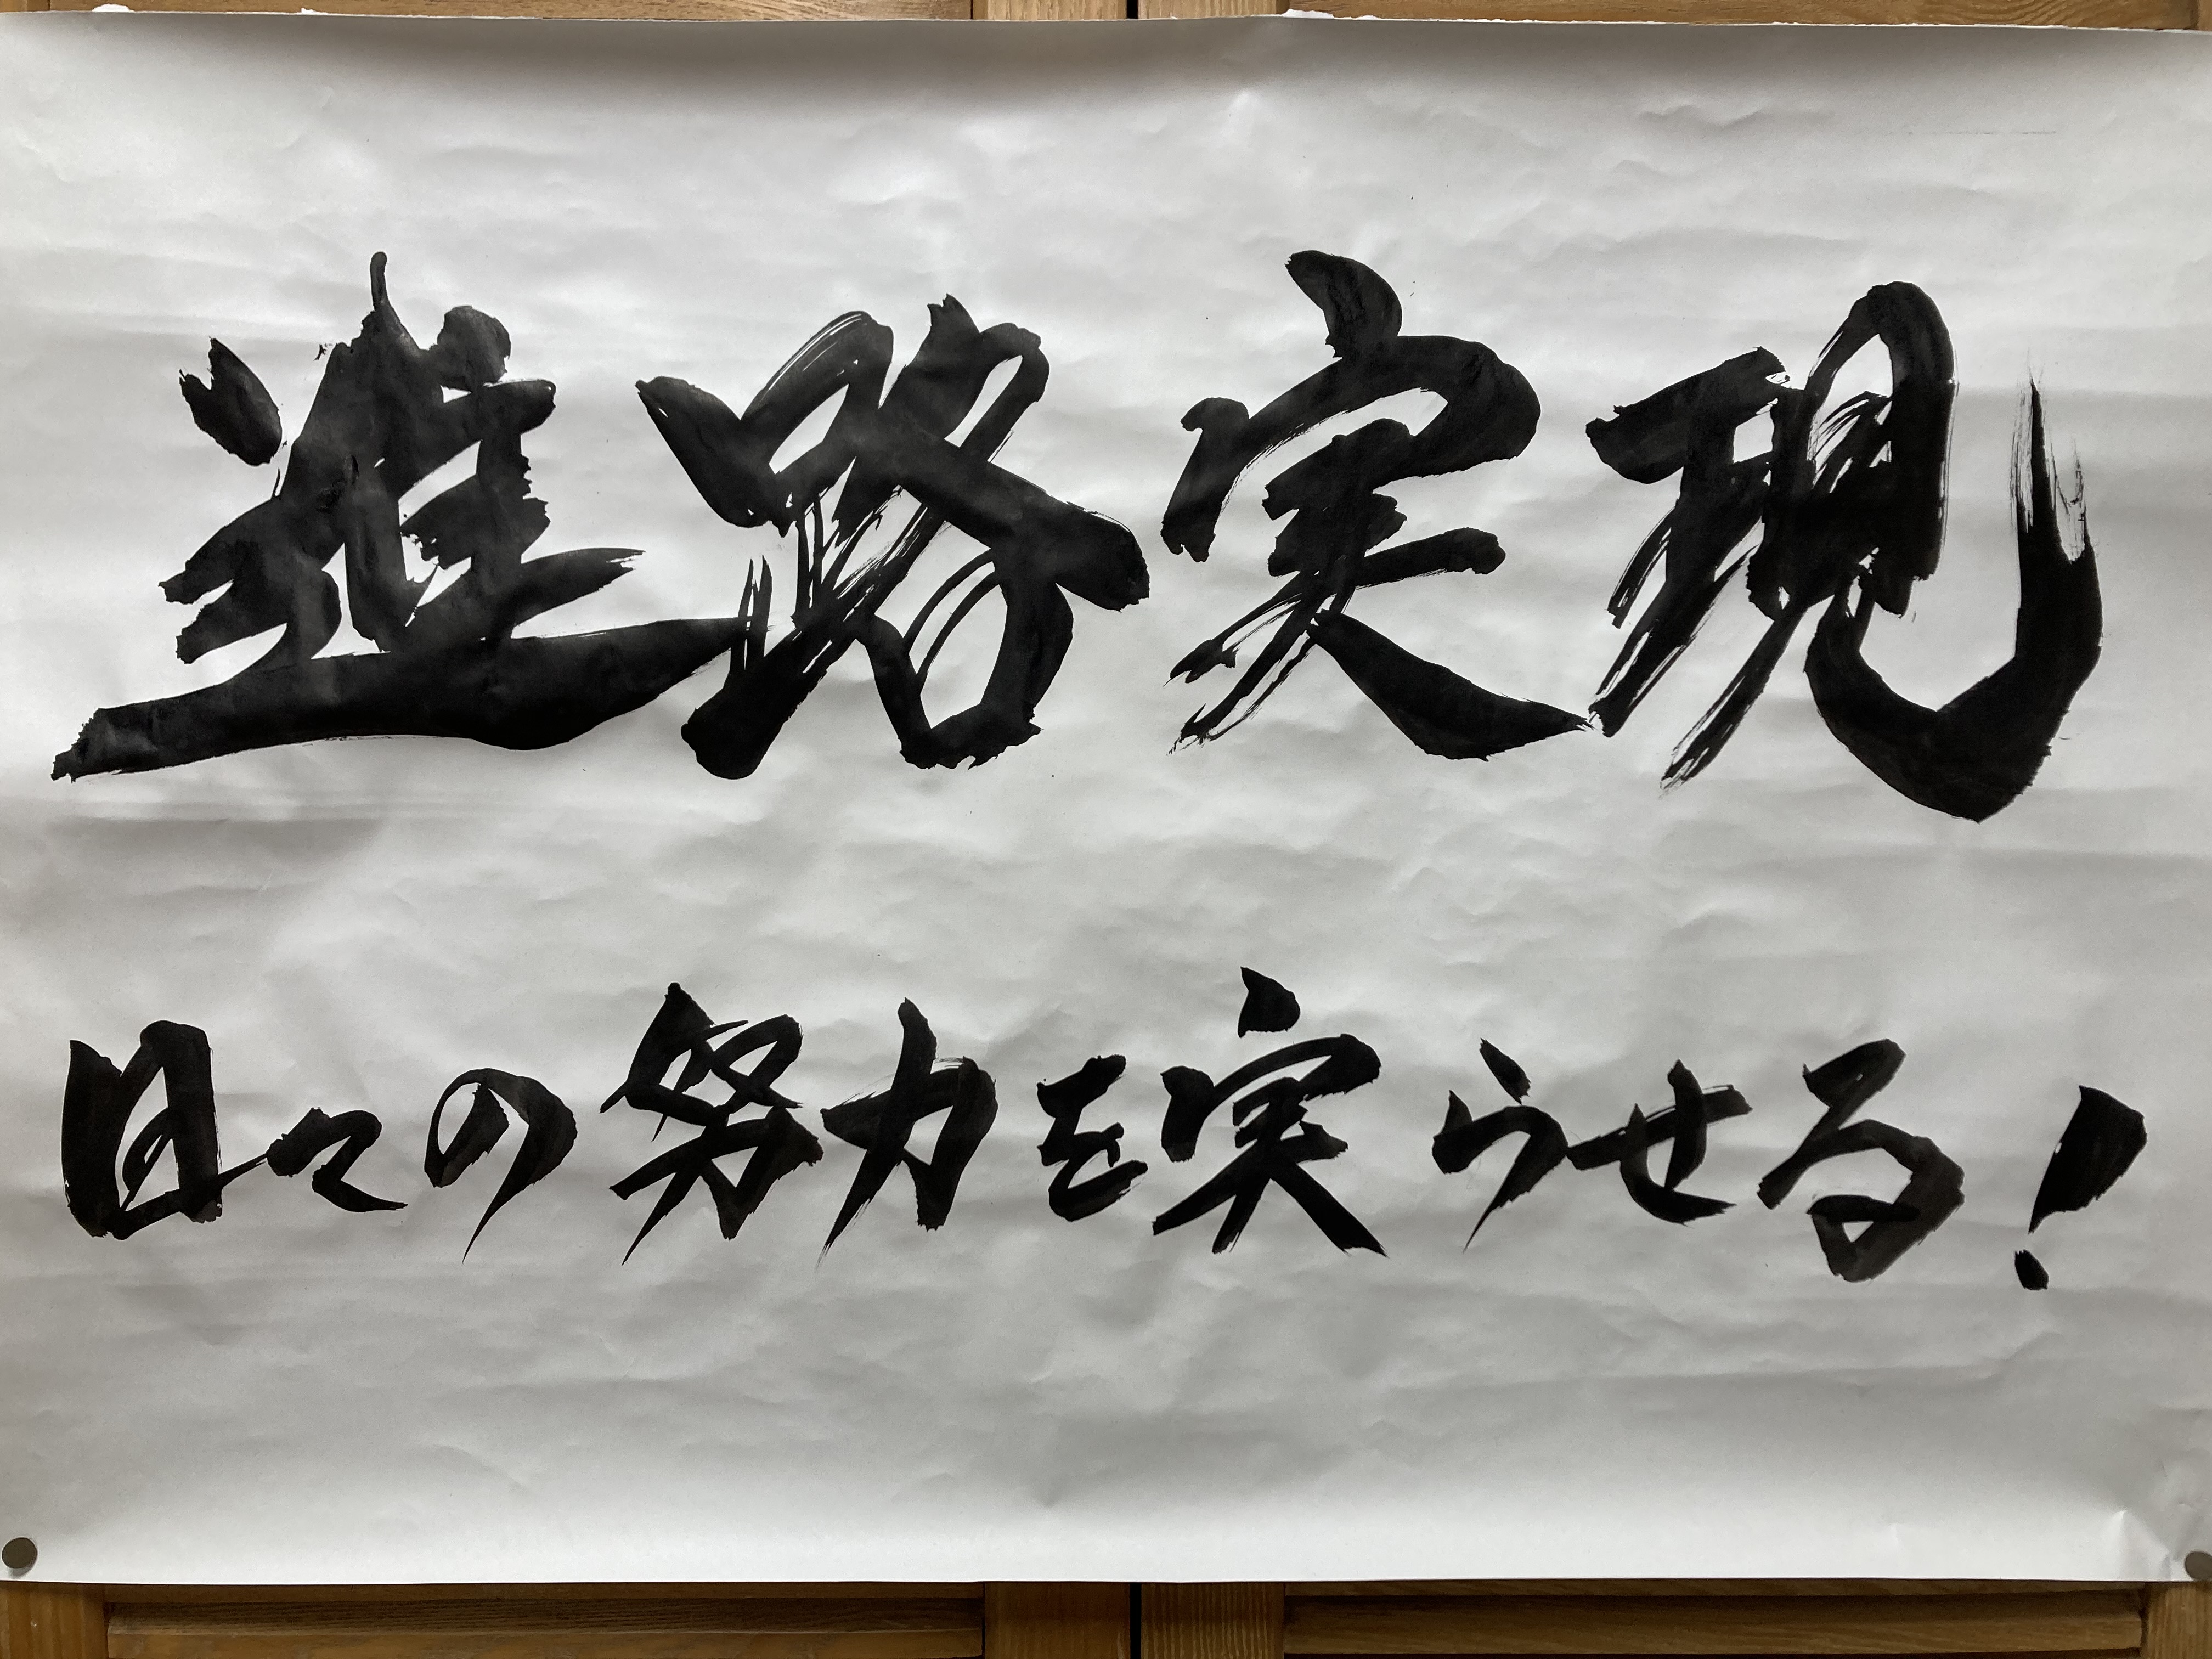 進路実現
日々の努力を実らせる!